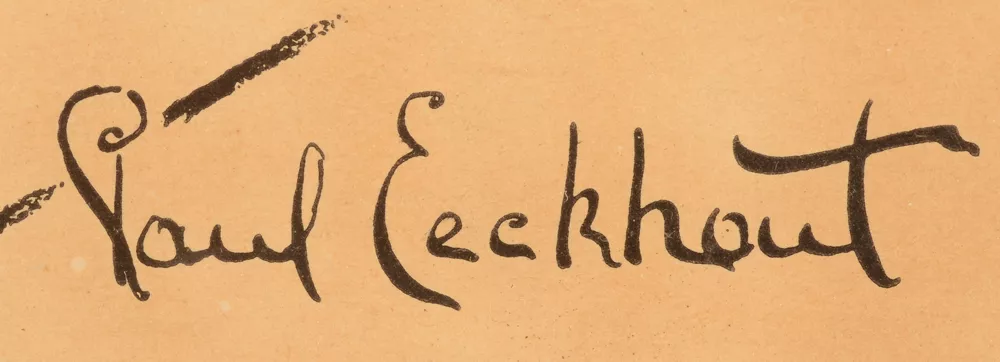 Paul Eeckhout